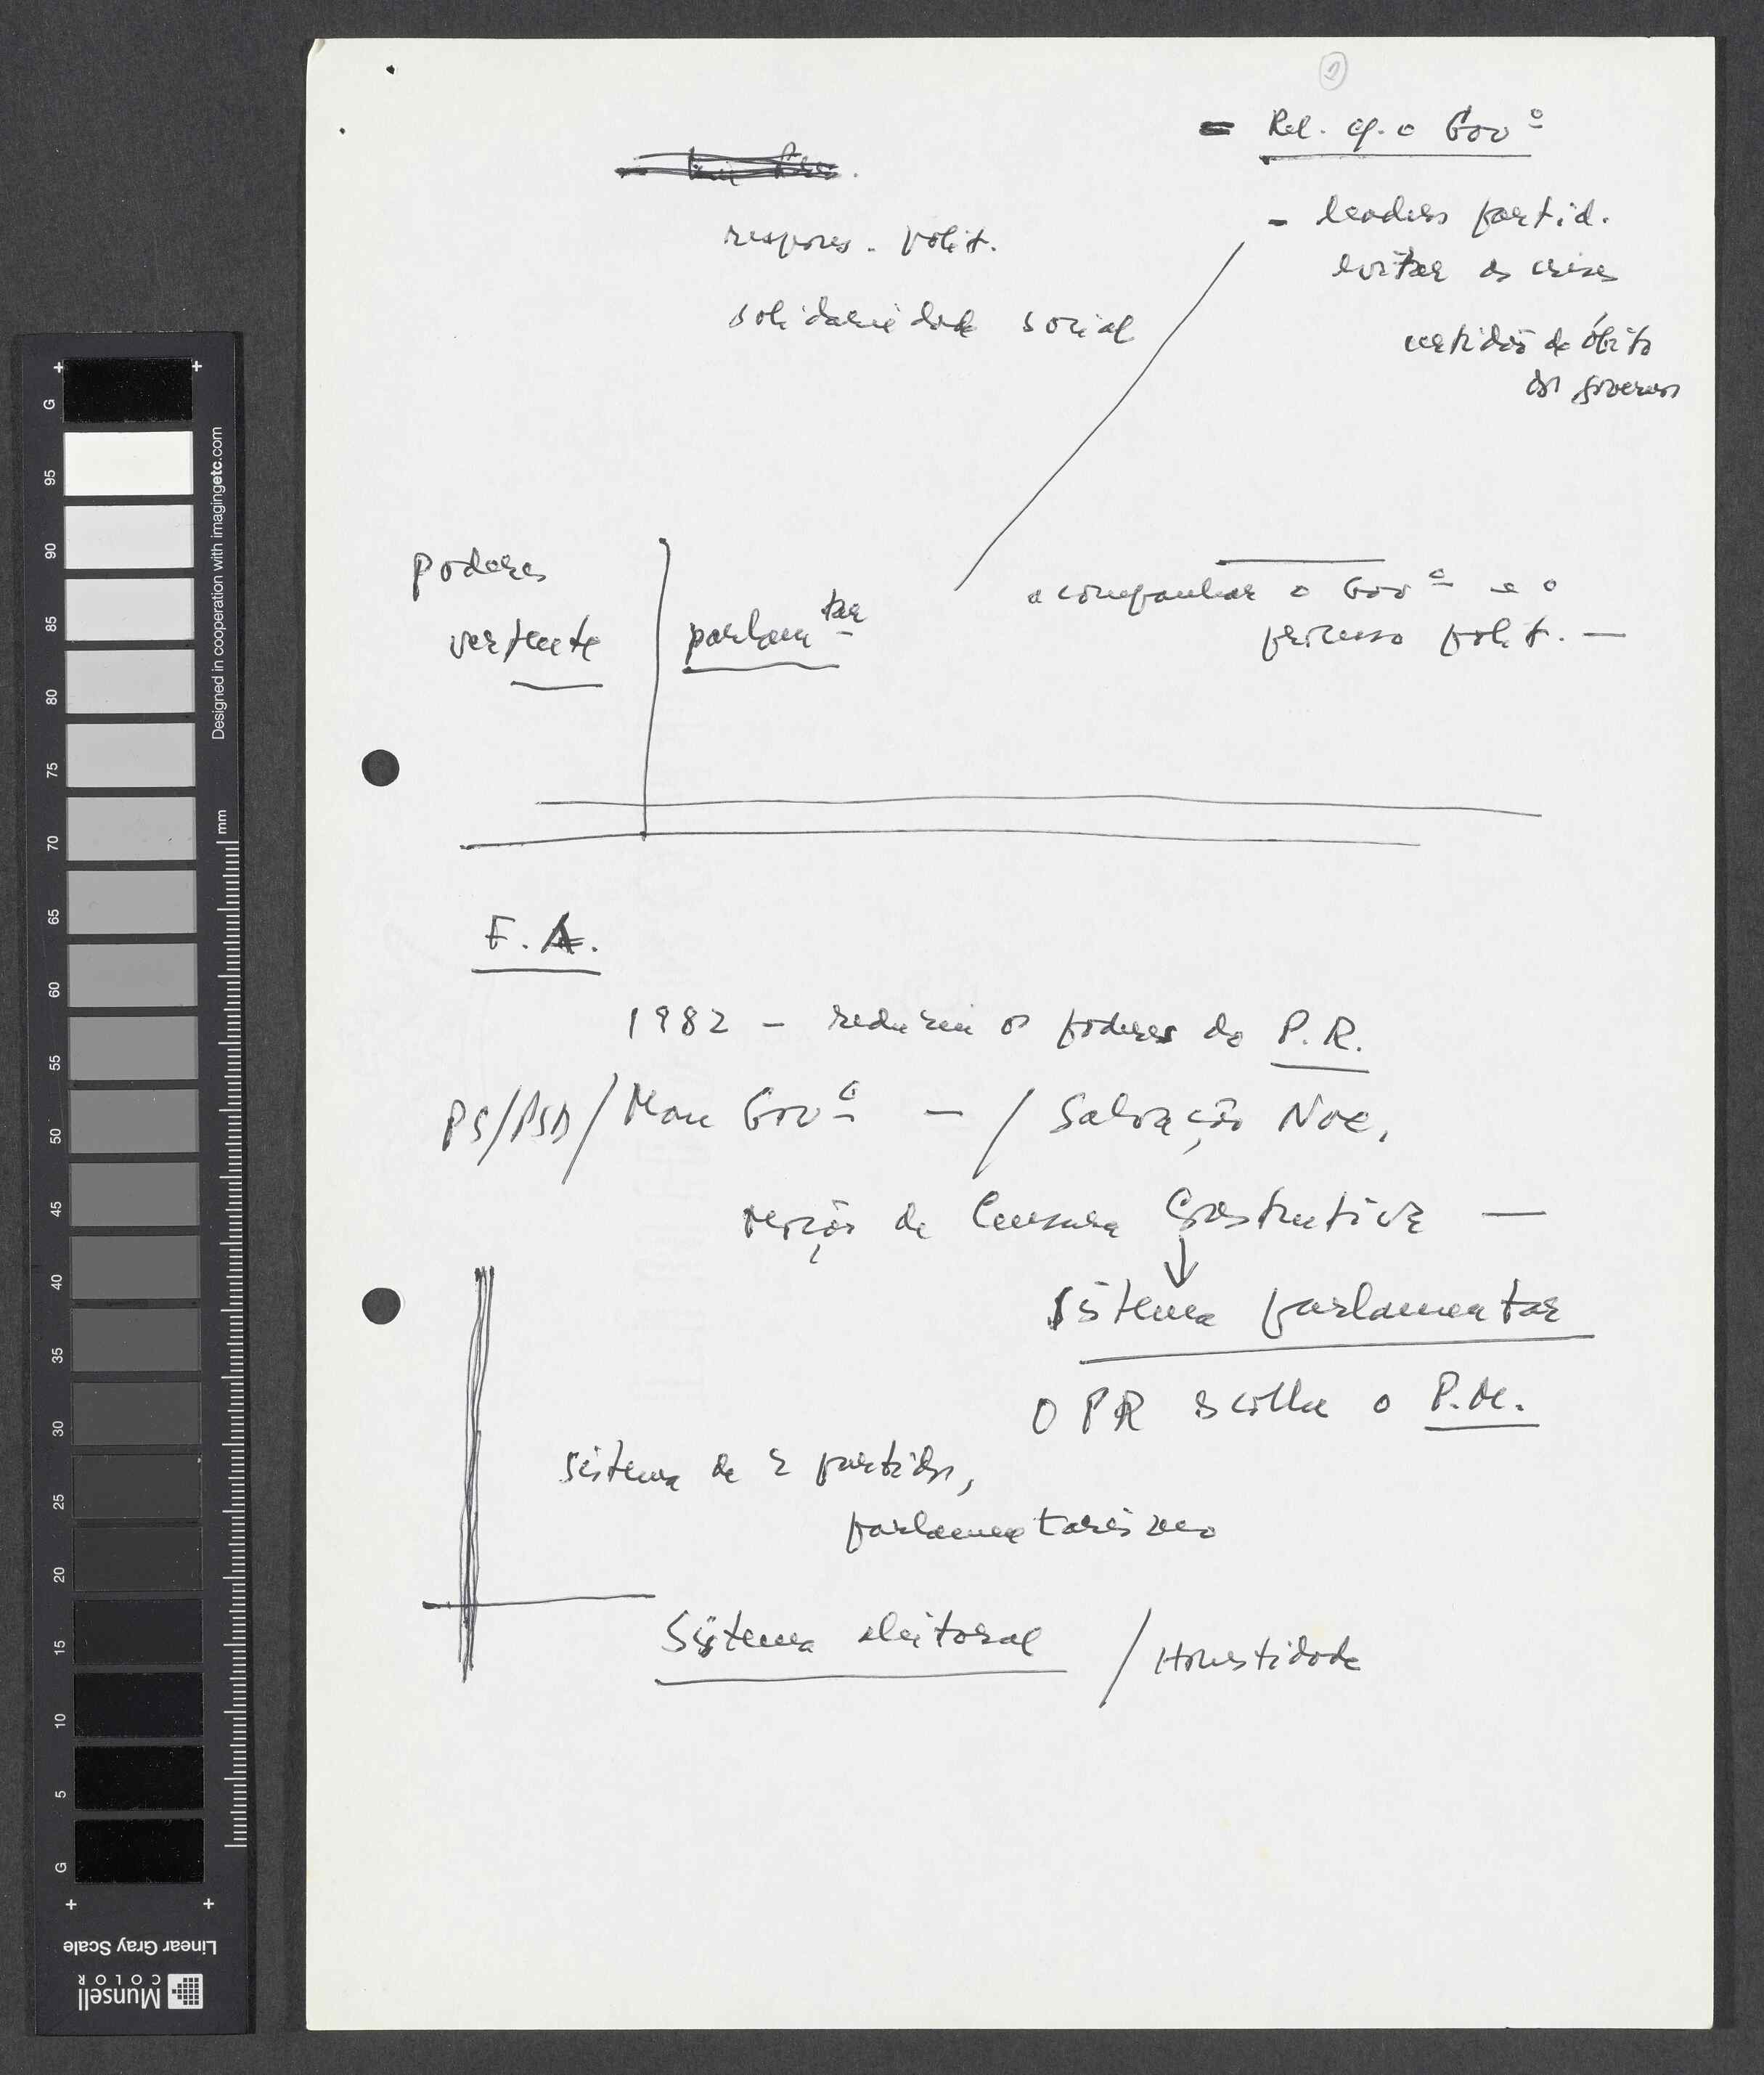 = Rel. c/. o Govº
- leaders partid.
evitar as crises
certidão de óbito
dos governos
respons. polít.
solidariedade social
poderes
vertente
parlamtar
acompanhar o Govº e o
processo polít. —
F. A.
1982 - reduziu os poderes do P.R.
PS/PSD/ Mau Govº — / Salvação Nac.
moção de Censura Construtiva —
↓
Sistema parlamentar
O PR escolhe o P.M.
sistema de 2 partidos,
parlamentarismo
Sistema eleitoral / Honestidade
G
95
90
85
80
75
70
65
60
55
50
45
40
35
30
25
20
15
10
5
G
mm
Designed in cooperation with imagingetc.com
Linear Gray Scale
Munsell
COLOR